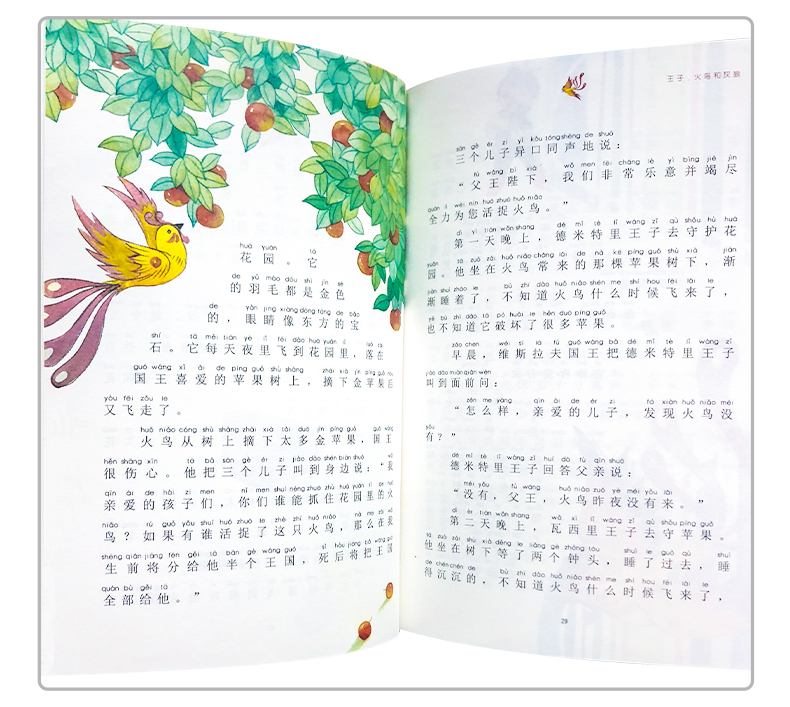 huā yuán tā
花园。它
de yǔ máo dōu shì jīn sè
的羽毛都是金色
de yǎn jīng xiàng dōng fāng de bǎo
的，眼睛像东方的宝
shí tā měi tiān yè lǐ fēi dào huā yuán lǐ luò zài
石。它每天夜里飞到花园里，落在
guó wáng xǐ ài de píng guǒ shù shàng zhāi xià jīn píng guǒ hòu
国王喜爱的苹果树上，摘下金苹果后
yòu fēi zǒu le
又飞走了。
huǒ niǎo cóng shù shàng zhāi xià tài duō jīn píng guǒ guó wáng
火鸟从树上摘下太多金苹果，国王
hěn shāng xīn tā bǎ sān gè ér zi jiào dào shēn biān shuō wǒ
很伤心。他把三个儿子叫到身边说：“我
qīn ài de hái zi men nǐ men shuí néng zhuā zhù huā yuán lǐ de huǒ
亲爱的孩子们，你们谁能抓住花园里的火
niǎo rú guǒ yǒu shuí huó zhuō le zhè zhī huǒ niǎo nà me zài wǒ
鸟？如果有谁活捉了这只火鸟，那么在我
shēng qián jiāng fēn gěi tā bàn gè wáng guó sǐ hòu jiāng bǎ wáng guó
生前将分给他半个王国，死后将把王国
quán bù gěi tā
全部给他。”
王子、火鸟和灰狼
sān gè ér zi yì kǒu tóng shēng de shuō
三个儿子异口同声地说：
fù wáng bì xià wǒ men fēi cháng lè yì bìng jié jìn
“父王陛下，我们非常乐意并竭尽
quán lì wèi nín huó zhuō huǒ niǎo
全力为您活捉火鸟。”
dì yī tiān wǎn shàng dé mǐ tè lǐ wáng zǐ qù shǒu hù huā
第一天晚上，德米特里王子去守护花
yuán tā zuò zài huǒ niǎo cháng lái de nà kē píng guǒ shù xià jiàn
园。他坐在火鸟常来的那棵苹果树下，渐
jiàn shuì zháo le bù zhī dào huǒ niǎo shén me shí hou fēi lái le
渐睡着了，不知道火鸟什么时候飞来了，
yě bù zhī dào tā pò huài le hěn duō píng guǒ
也不知道它破坏了很多苹果。
zǎo chen wéi sī lā fū guó wáng bǎ dé mǐ tè lǐ wáng zǐ
早晨，维斯拉夫国王把德米特里王子
jiào dào miàn qián wèn
叫到面前问：
zěn me yàng qīn ài de ér zi fā xiàn huǒ niǎo méi
“怎么样，亲爱的儿子，发现火鸟没
yǒu
有？”
dé mǐ tè lǐ wáng zǐ huí dá fù qīn shuō
德米特里王子回答父亲说：
méi yǒu fù wáng huǒ niǎo zuó yè méi yǒu lái
“没有，父王，火鸟昨夜没有来。”
dì èr tiān wǎn shàng wǎ xī lǐ wáng zǐ qù shǒu píng guǒ
第二天晚上，瓦西里王子去守苹果。
tā zuò zài shù xià děng le liǎng gè zhōng tóu shuì le guò qù shuì
他坐在树下等了两个钟头，睡了过去，睡
de chén chén de bù zhī dào huǒ niǎo shén me shí hou fēi lái le
得沉沉的，不知道火鸟什么时候飞来了，
29